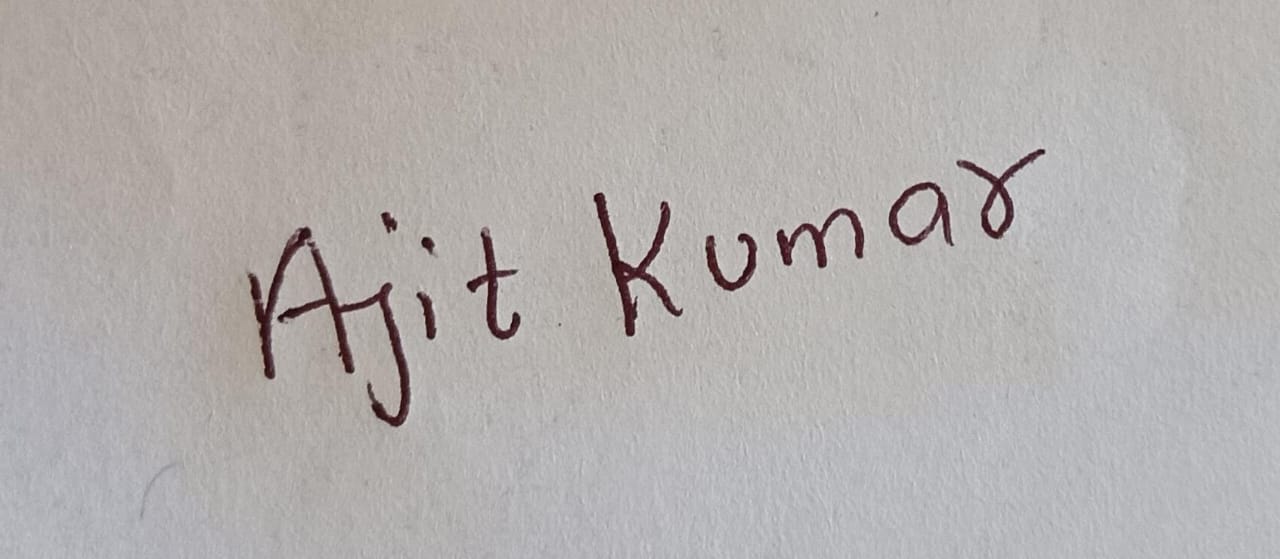 Ajit Kumar